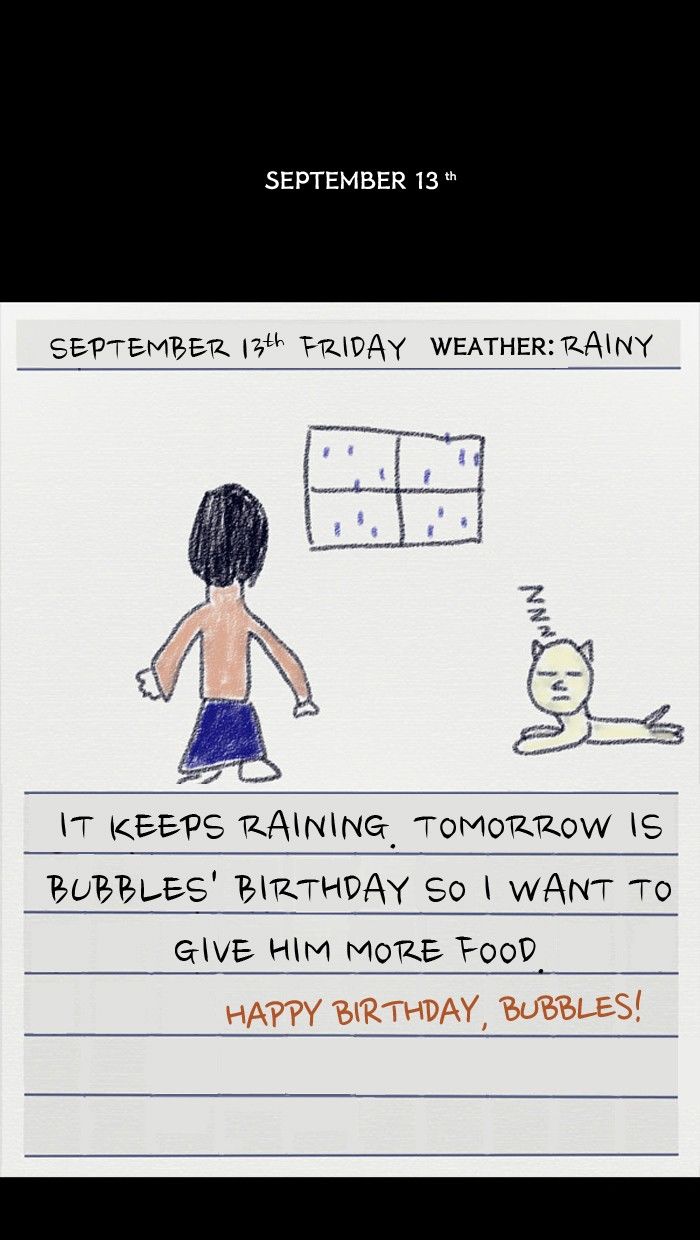 SEPTEMBER 13th
SEPTEMBER 13th FRIDAY WEATHER: RAINY
Z
Z
Z
IT KEEPS RAINING. TOMORROW IS
BUBBLES' BIRTHDAY SO I WANT TO
GIVE HIM MORE FOOD.
HAPPY BIRTHDAY, BUBBLES!